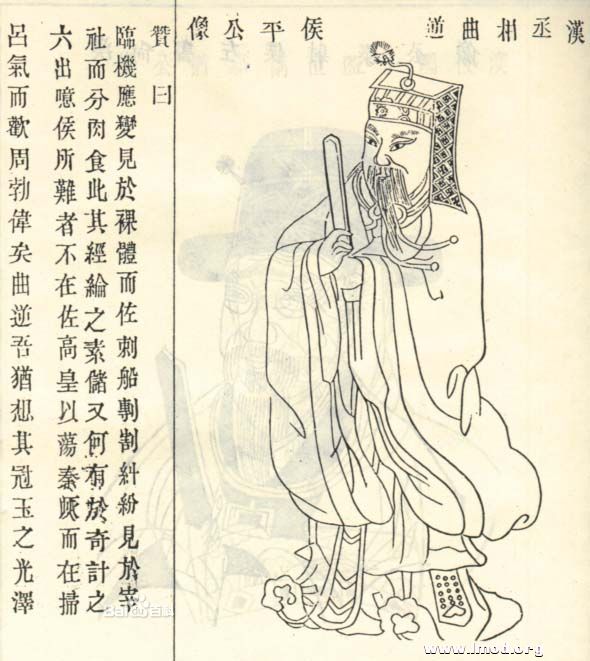 漢丞相曲逆侯平公像
贊曰
臨機應變見於裸體而佐刺船剸割糾紛見於宰
社而分肉食此其經綸之素儲又何有於奇計之
六出噫侯所難者不在佐高皇以蕩秦而在掃
呂氣而歡周勃偉矣曲逆吾猶想其冠玉之光澤
Bai百科
www.lmod.org